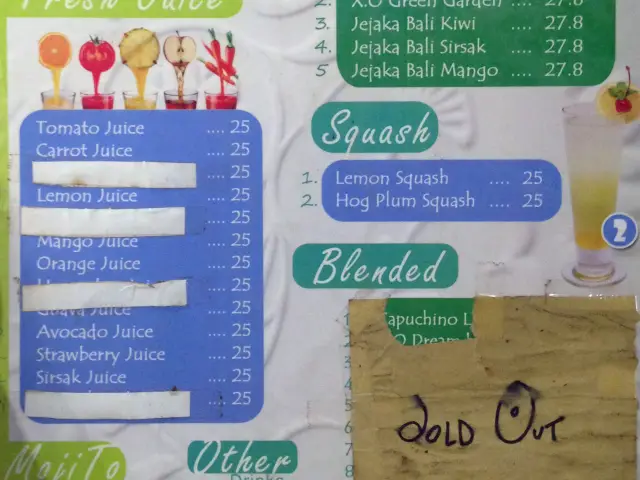 Fresh Juice
Tomato Juice .... 25
Carrot Juice .... 25
.... 25
Lemon Juice .... 25
.... 25
Mango Juice .... 25
Orange Juice .... 25
.... 25
Guava Juice .... 25
Avocado Juice .... 25
Strawberry Juice .... 25
Sirsak Juice .... 25
.... 25
MojiTo
Other
Drinks
2. X.O Green Garden .... 27.8
3. Jejaka Bali Kiwi .... 27.8
4. Jejaka Bali Sirsak .... 27.8
5 Jejaka Bali Mango .... 27.8
Squash
1. Lemon Squash .... 25
2. Hog Plum Squash .... 25
2
Blended
1 Capuchino
2 Dream
3
4
5
6
7
8
SOLD OUT